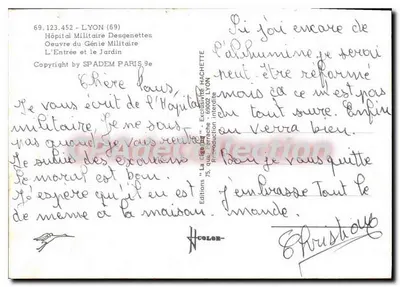 69.123.452 - LYON (69)
Hôpital Militaire Desgenettes
Oeuvre du Génie Militaire
L'Entrée et le Jardin
Copyright by SPADEM PARIS 9e
Chère
Je vous écrit de l'Hôpital
militaire. Je ne sais
pas quand je vous
Je subis des examens
Le moral est bon.
J'espère qu'il en est
de même à la maison.
Si j'ai encore de
l'albumine je serai
peut-être réformé
mais ça ce n'est pas
du tout sure. Enfin
on verra bien.
Bon je vous quitte
J'embrasse tout le
monde.
Christian
Editions "La
75, rue 69002 LYON
Reproduction interdite
HACHETTE
COLOR